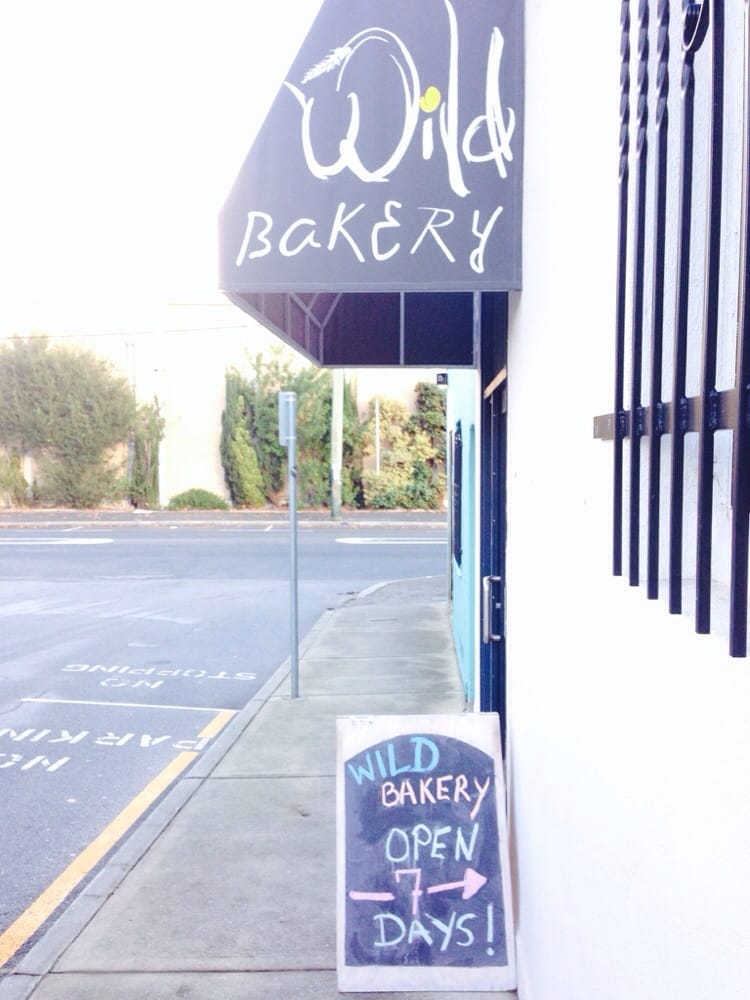 Wild
BaKERY
NO
STOPPING
NO
PARKING
WILD
BAKERY
OPEN
7
DAYS!